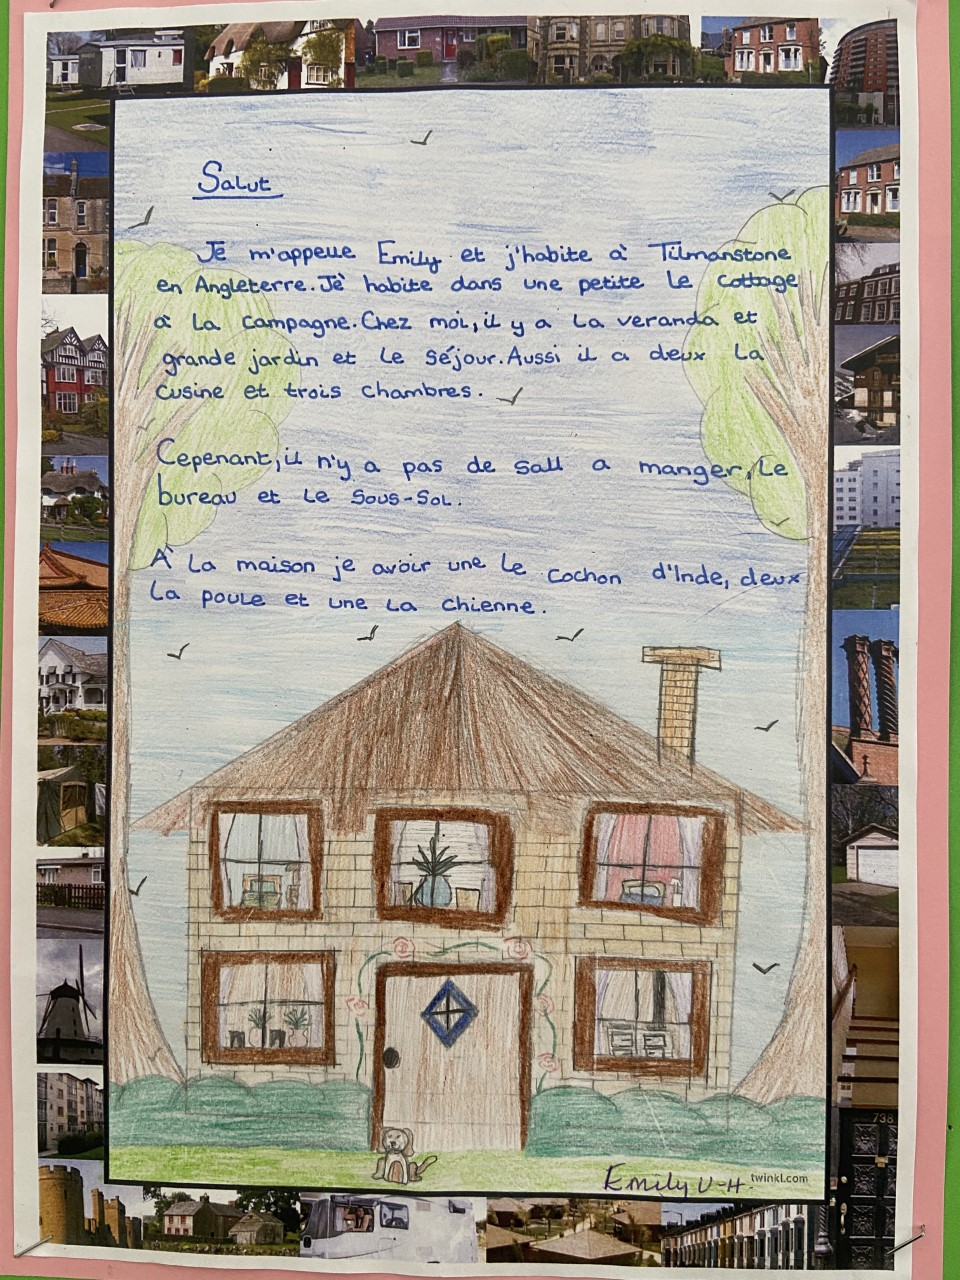 Salut
Je m'appelle Emily et j'habite à Tilmanstone
en Angleterre. Jè habite dans une petite le cottage
à la campagne. Chez moi, il y a la veranda et
grande jardin et le séjour. Aussi il a deux la
cusine et trois chambres.
Cepenant, il n'y a pas de sall a manger, le
bureau et le sous-sol.
À la maison je avoir une le cochon d'Inde, deux
la poule et une la chienne.
Emily V-H.
twinkl.com
738